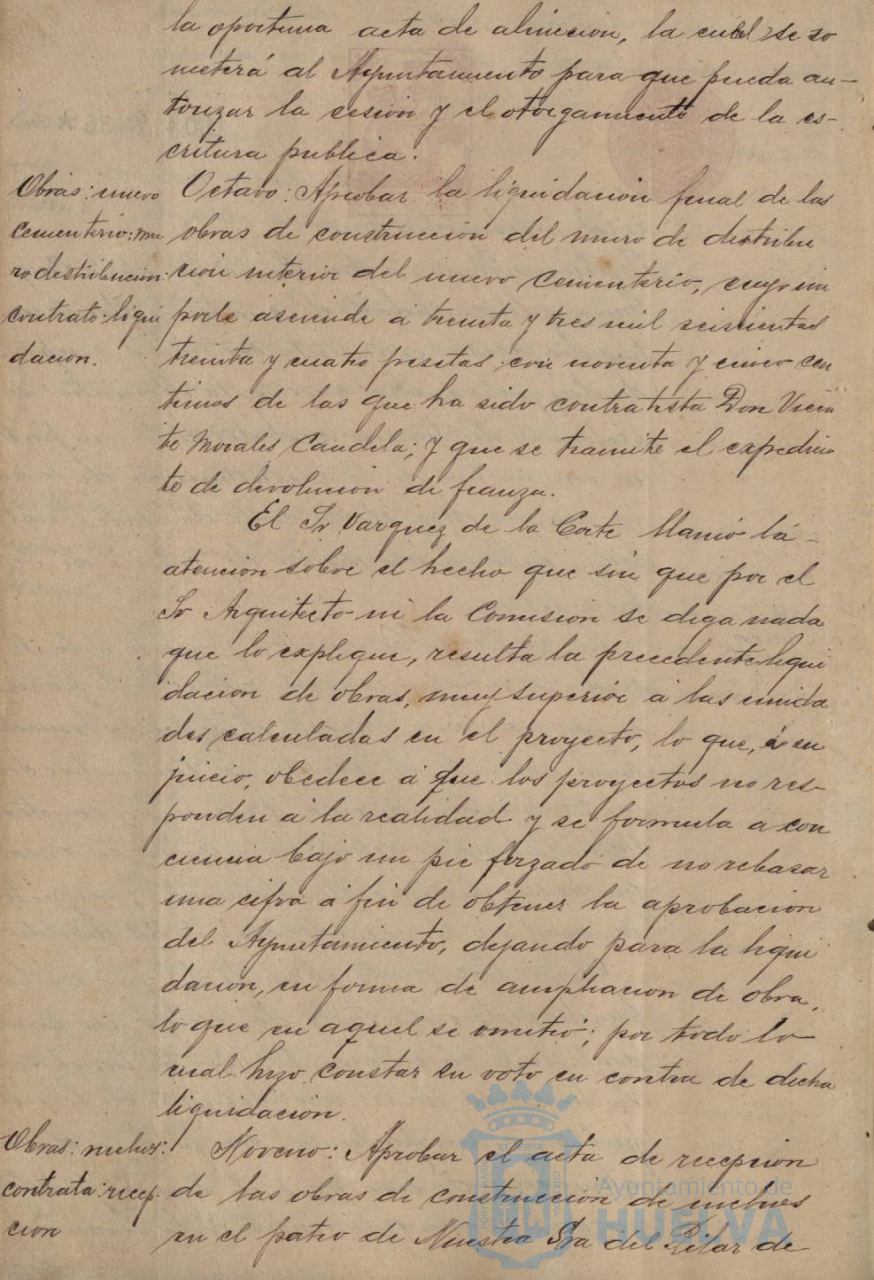 la oportuna acta de alineción, la cual se so
meterá al Ayuntamiento para que pueda au-
torizar la cesión y el otorgamiento de la es-
critura publica.
Obras: nuevo
cementerio: mu
ro destribucion:
contrato: liqui
dacion.
Octavo: Aprobar la liquidación final de las
obras de construcción del muro de distribu
ción interior del nuevo cementerio, cuyo im
porte asciende a treinta y tres mil seiscientas
treinta y cuatro pesetas con noventa y cinco cen
timos de las que ha sido contratista Don Vicen
te Morales Candela; y que se tramite el expedien
te de devolución de fianza.
El Sr Vazquez de la Corte llamó la
atencion sobre el hecho que sin que por el
Sr Arquitecto ni la Comision se diga nada
que lo explique, resulta la precedente liqui
dacion de obras, muy superior a las unida
des calculadas en el proyecto, lo que, á su
juicio, obedece á que los proyectos no res-
ponden á la realidad y se formula a con
ciencia bajo un pie forzado de no rebasar
una cifra á fin de obtener la aprobacion
del Ayuntamiento, dejando para la liqui
dacion, en forma de ampliacion de obra,
lo que en aquel se omitió; por todo lo
cual hizo constar su voto en contra de dicha
liquidación.
Obras: nichos:
contrata: recep
cion
Noveno: Aprobar el acta de recepción
de las obras de construcción de nichos
en el patio de Nuestra Sra del Pilar de
Ayuntamiento de
HUELVA